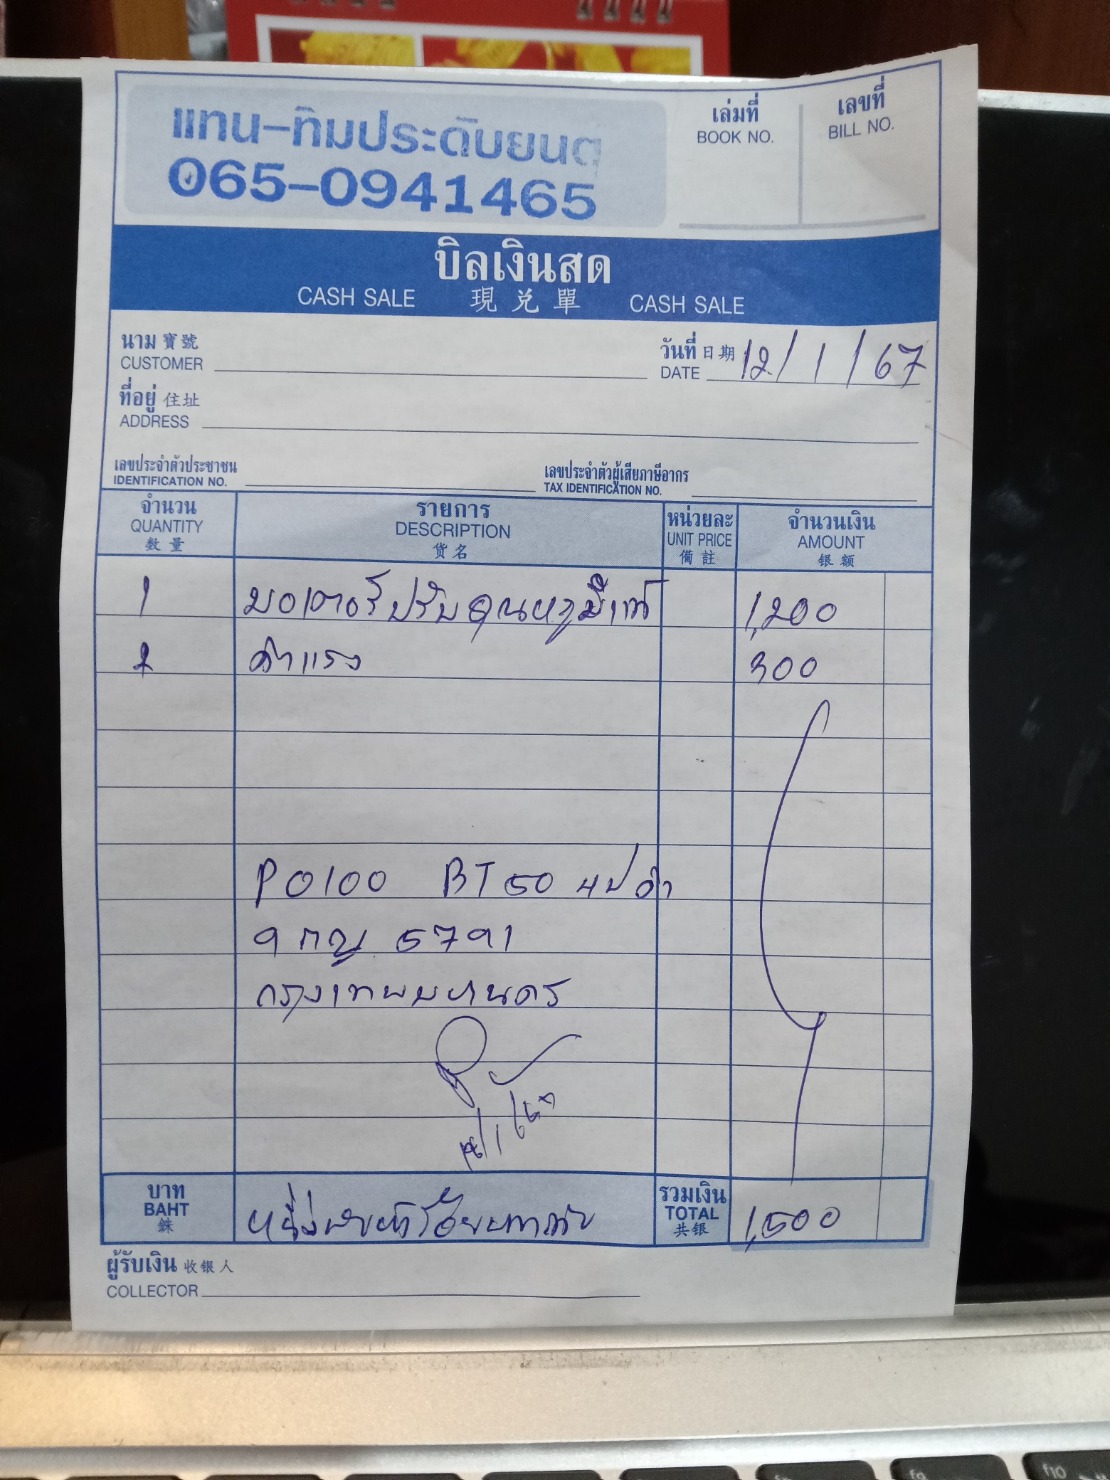 แทน-ทิมประดับยนต
065-0941465
เล่มที่
BOOK NO.
เลขที่
BILL NO.
บิลเงินสด
CASH SALE 現兌單 CASH SALE
นาม 寶號
CUSTOMER
วันที่ 日期
DATE 12/1/67
ที่อยู่ 住址
ADDRESS
เลขประจำตัวประชาชน
IDENTIFICATION NO.
เลขประจำตัวผู้เสียภาษีอากร
TAX IDENTIFICATION NO.
จำนวน รายการ หน่วยละ จำนวนเงิน
QUANTITY DESCRIPTION UNIT PRICE AMOUNT
数量 货名 備註 银额
1 มอเตอร์ปรับอุณหภูมิแท้ 1,200
2 ค่าแรง 300
PO100 BT50 4ป ดำ
9 กญ 5791
กรุงเทพมหานคร
บาท
BAHT
銖
หนึ่งพันห้าร้อยบาทถ้วน
รวมเงิน
TOTAL
共银
1,500
ผู้รับเงิน 收银人
COLLECTOR
f9
f10